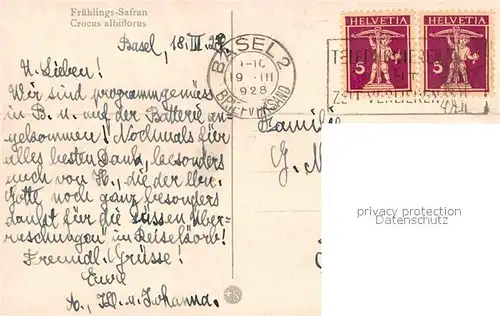 Frühlings-Safran
Crocus albiflorus
Basel, 18. III. 28.
M. Lieben!
Wir sind programmgemäss
in B. u. auf der Batterie an-
gekommen! Nochmals für
alles besten Dank, besonders
auch von H., die der
Gotte, noch ganz besonders
dankt für die süssen Über-
raschungen im Reisekorb!
Freundl. Grüsse!
Eure
A., u. Johanna.
BASEL 2
19. III
1928
BRIEFVERSAND
HELVETIA
5
HELVETIA
5
Familie
G.
privacy protection
Datenschutz